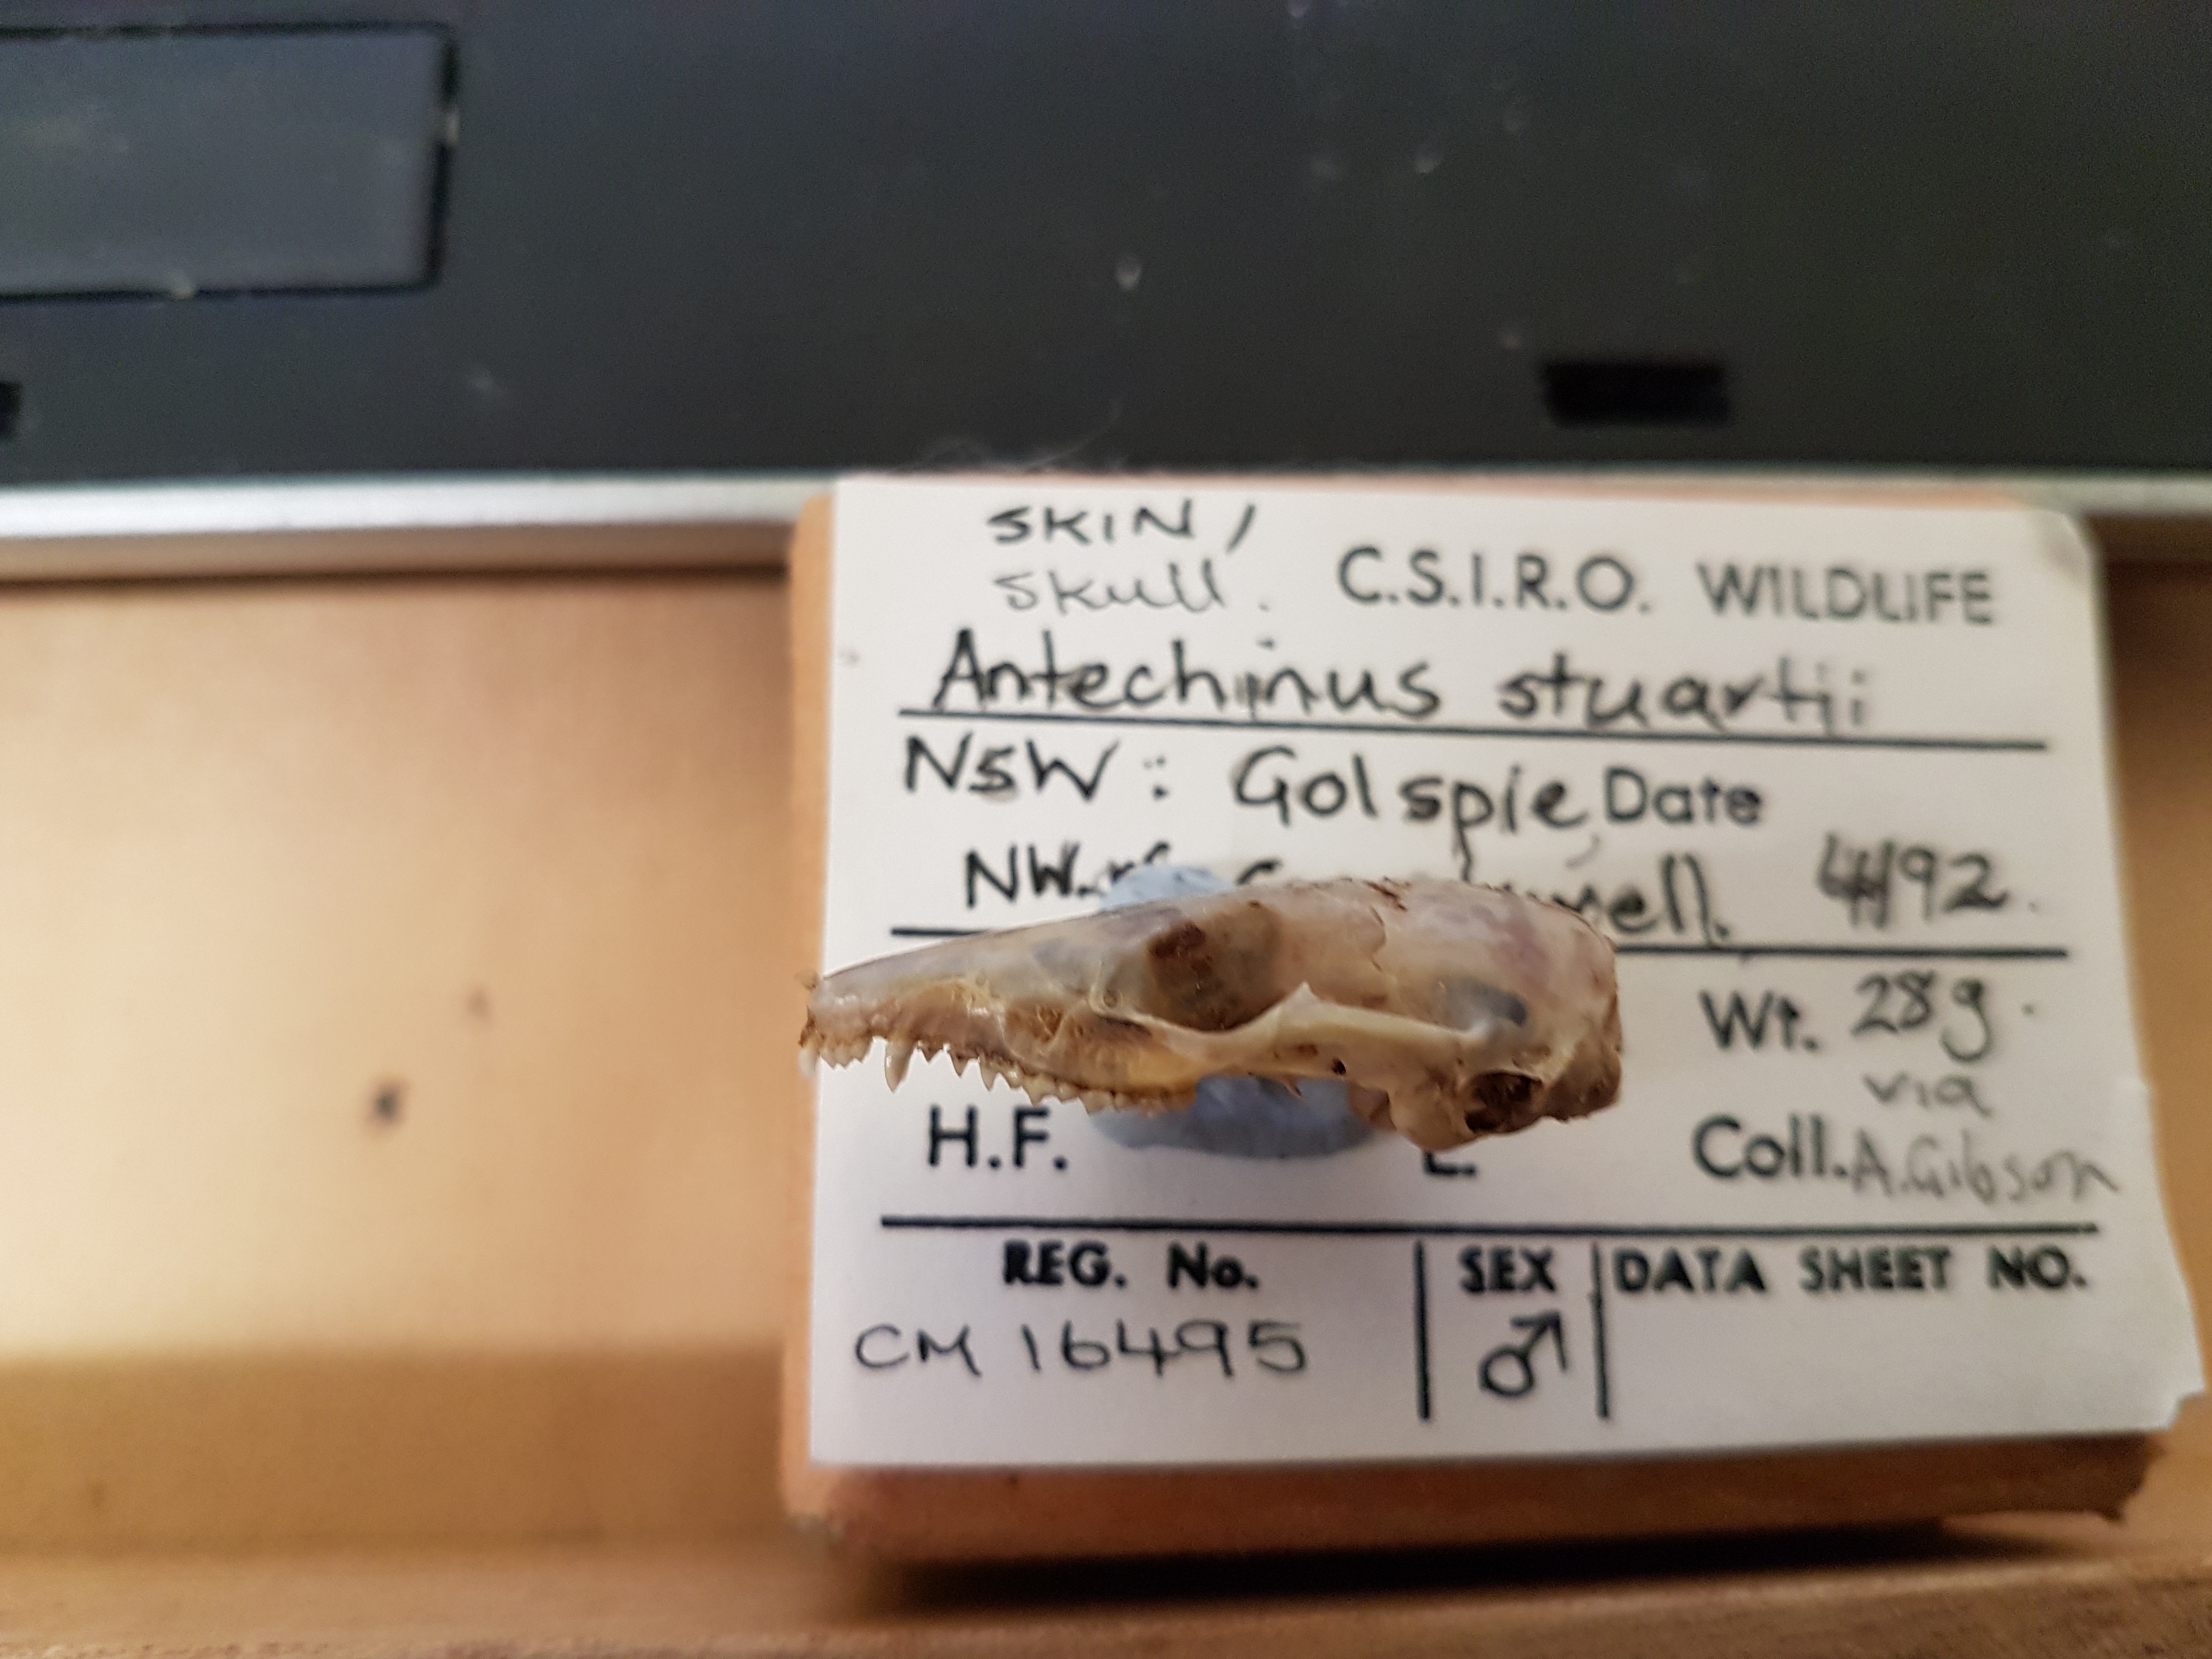 SKIN /
skull. C.S.I.R.O. WILDLIFE
Antechinus stuartii
NSW: Golspie, Date
NW. 4/92.
Wt. 28g.
via
H.F. Coll. A.Gibson
REG. No. SEX DATA SHEET NO.
CM 16495 ♂